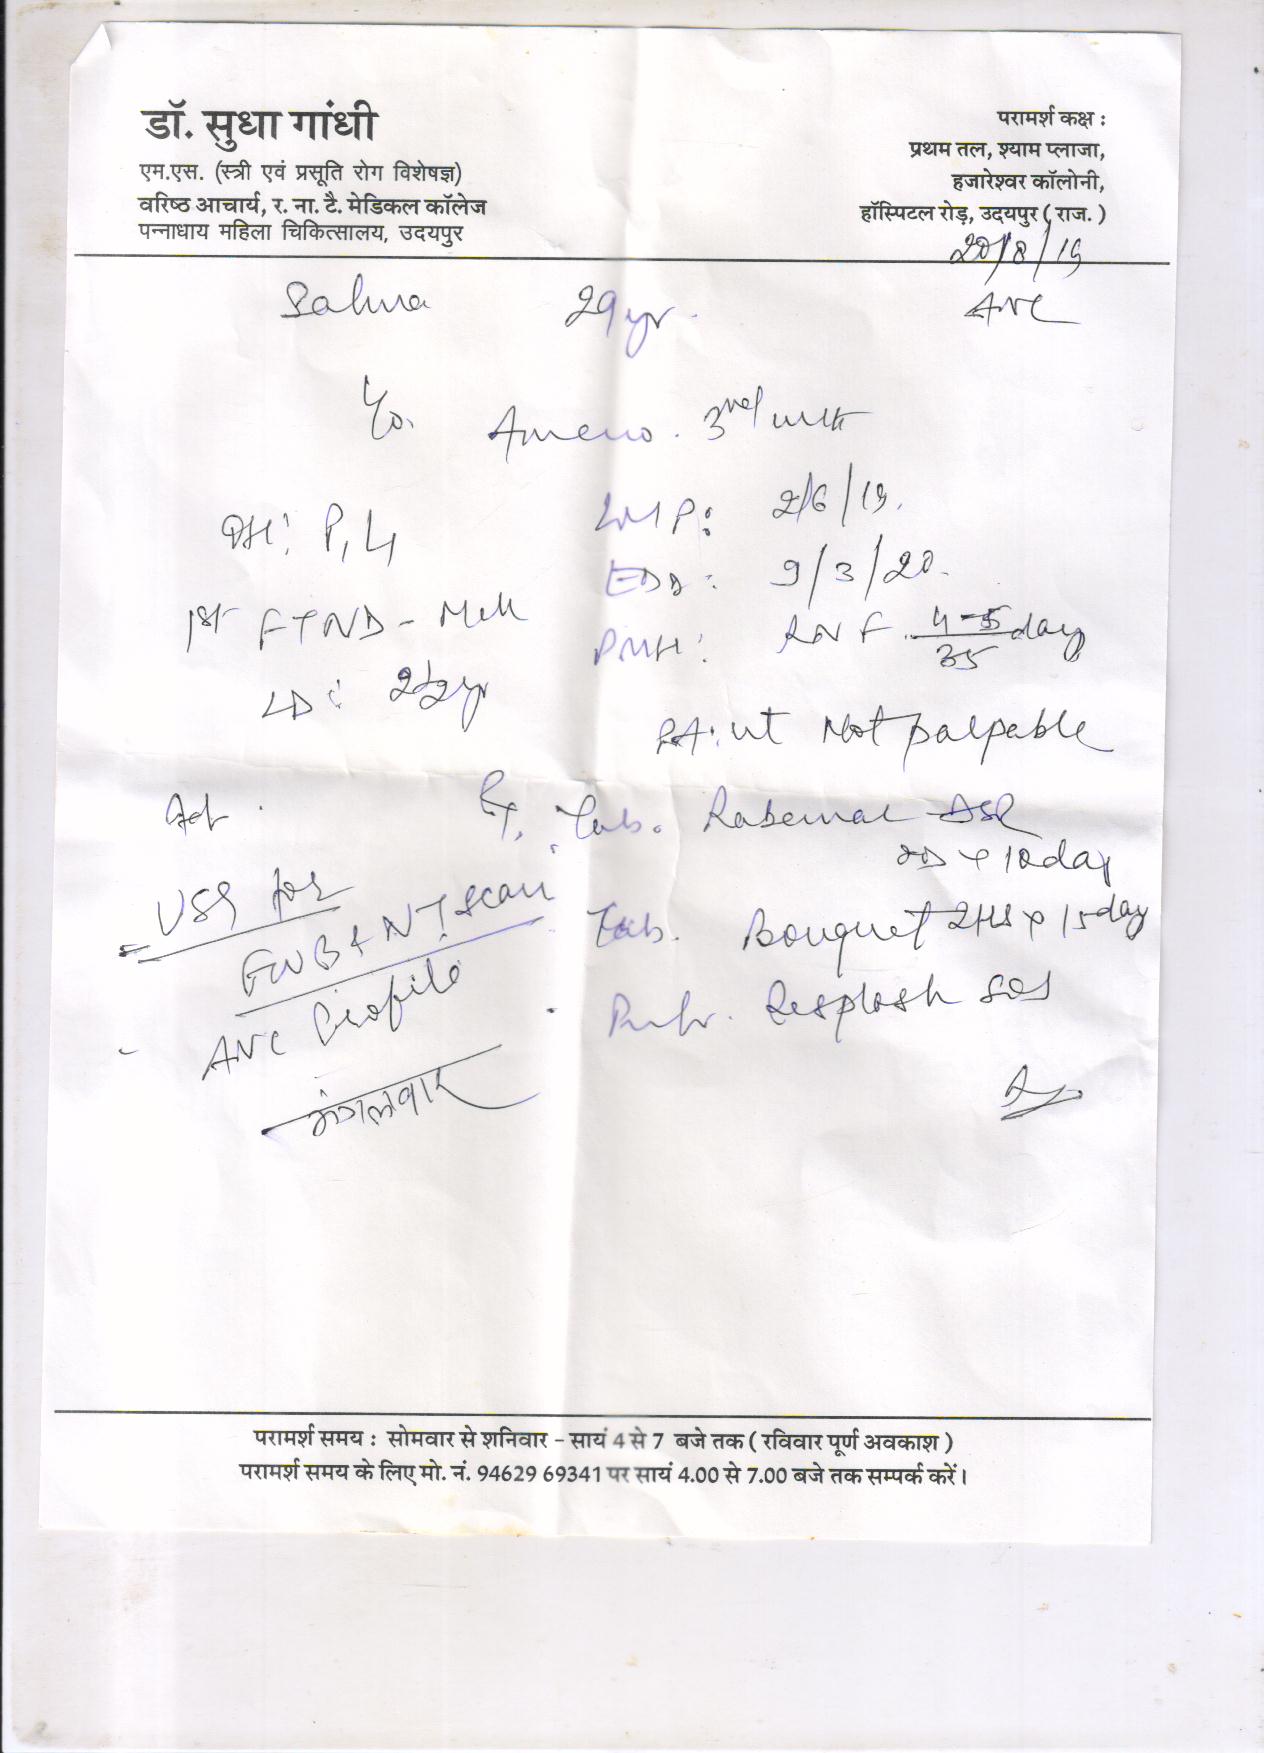 डॉ. सुधा गांधी
एम.एस. (स्त्री एवं प्रसूति रोग विशेषज्ञ)
वरिष्ठ आचार्य, र. ना. टै. मेडिकल कॉलेज
पन्नाधाय महिला चिकित्सालय, उदयपुर
परामर्श कक्ष :
प्रथम तल, श्याम प्लाजा,
हजारेश्वर कॉलोनी,
हॉस्पिटल रोड़, उदयपुर ( राज. )
20/8/19
29 yr.
ANC
Ameno. 3rd mth
LMP: 2/6/19.
OH: P1 L1
EDD: 9/3/20.
1st FTND - Mch
PMH: RNF. 4-5 day
35
LD: 2 1/2 yr
PA: ut Not palpable
Adv.
Rx, Tab. DSR
OD x 10 day
USG for
FWB & NT scan
Tab. Bouquet 2HS x 15 day
ANC Profile
Resplash SOS
मंगलवार
परामर्श समय : सोमवार से शनिवार - सायं 4 से 7 बजे तक ( रविवार पूर्ण अवकाश )
परामर्श समय के लिए मो. नं. 94629 69341 पर सायं 4.00 से 7.00 बजे तक सम्पर्क करें।